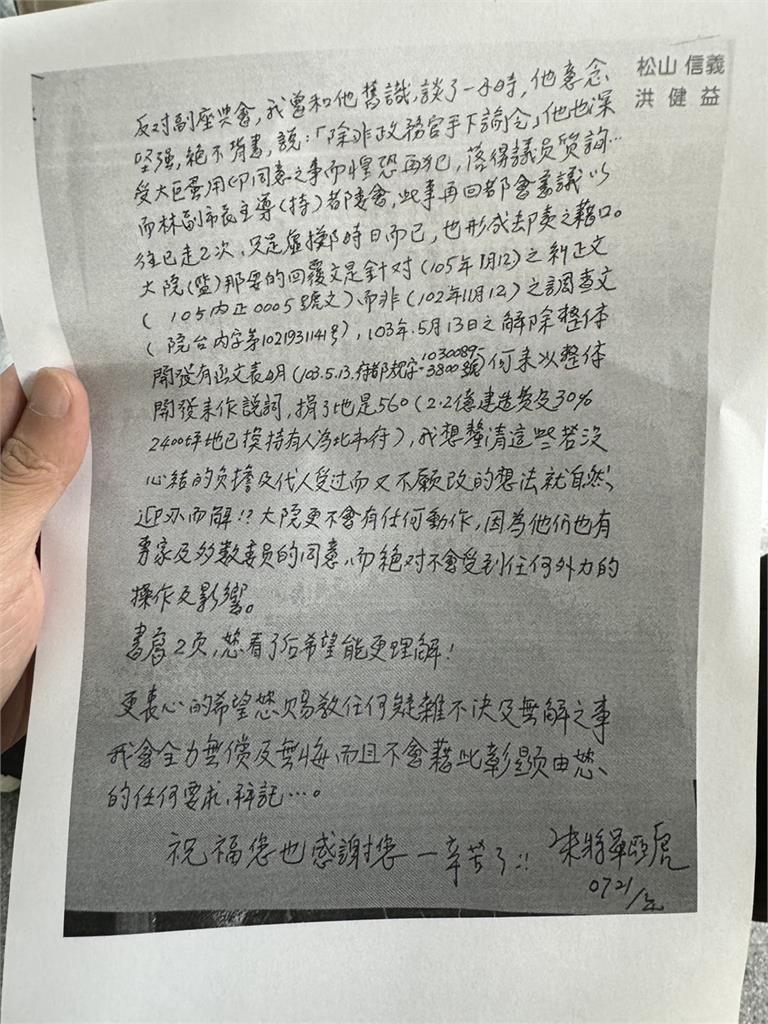 松山 信義
洪 健 益
反对副座與會,我曾和他舊識,談了一小時,他意念
坚强,絕不背書,說:「除非政務官手下諭令」他也深
受大巨蛋用印同意之事而惶恐再犯,落得議員質詢…
而林副市長主導(持)都委會,此事再回都會審議以
往已走2次,只是虛擲時日而已,也形成卸責之藉口。
大院(監)那要的回覆文是針对(105年1月12)之糾正文
(105內正0005號文)而非(102年11月12)之調查文
(院台內字第1021931141号),103年.5月13日之解除整体
開發有函文表明(103.5.13.府都規字1030089-3800號)何來以整体
開發來作說詞,捐了地是560(2.2億建造費及30%
2400坪地已模持有人為北市府),我想釐清這些若沒
心結的负擔及代人受过而又不願改的想法就自然、
迎刃而解!?大院更不會有任何動作,因為他们也有
專家及多數委員的同意、而絕对不會受到任何外力的
操作及影響。
書寫2页,您看了后希望能更理解!
更衷心的希望您賜教任何疑難不决及無解之事
我會全力無償及無悔而且不會藉此彰顯由您、
的任何要求,拜託…。
祝福您也感謝您一辛苦了!!
0721